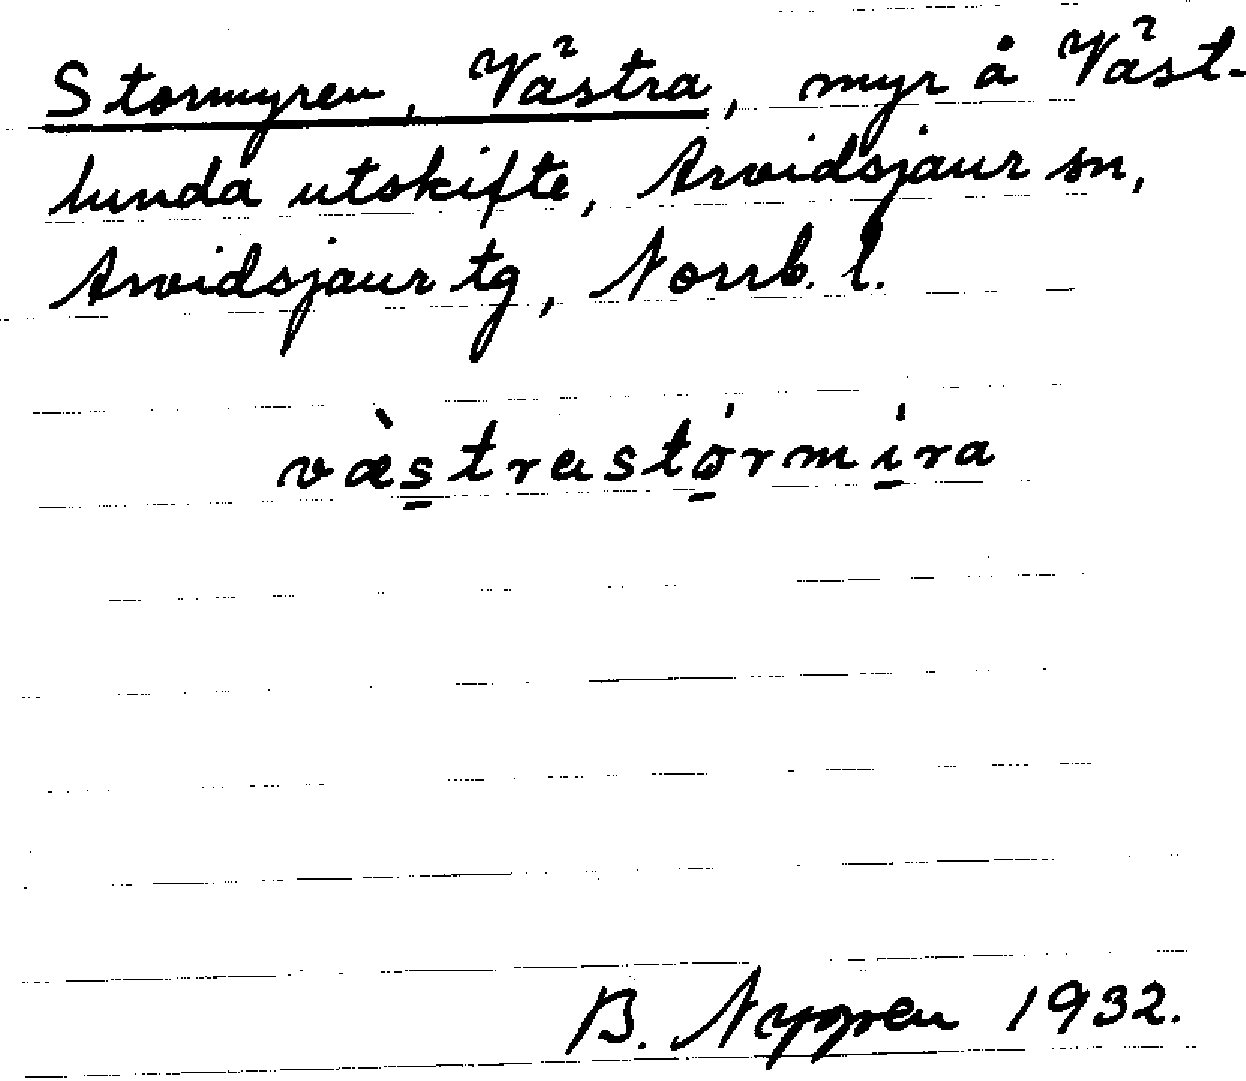 Stormyren, Västra, myr å Väst-
lunda utskifte, Arvidsjaur sn,
Arvidsjaur tg, Norrb. l.
væ̀strastórmíra
B. Nygren 1932.